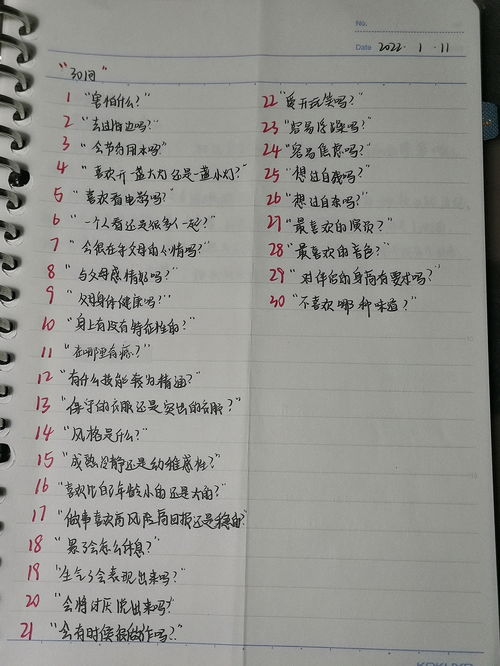 No.
Date 2022 · 1 · 11
"30问"
1 "害怕什么?"
2 "去过海边吗?"
3 "会节约用水吗?"
4 "喜欢开一盏大灯还是一盏小灯?"
5 "喜欢看电影吗?"
6 "一个人看还是很多人一起?"
7 "会很在乎父母的心情吗?"
8 "与父母感情好吗?"
9 "父母身体健康吗?"
10 "身上有没有特征性的?"
11 "在哪里有痣?"
12 "有什么技能较为精通?"
13 "保守的衣服还是突出的衣服?"
14 "风格是什么?"
15 "成熟冷静还是幼稚感性?"
16 "喜欢比自己年龄小的还是大的?"
17 "做事喜欢高风险高回报还是稳的?"
18 "累了会怎么休息?"
19 "生气了会表现出来吗?"
20 "会将讨厌说出来吗?"
21 "会有时候很做作吗?"
22 "爱开玩笑吗?"
23 "容易浮躁吗?"
24 "容易焦虑吗?"
25 "想过自我吗?"
26 "想过自杀吗?"
27 "最喜欢的演员?"
28 "最喜欢的音色?"
29 "对伴侣的身高有要求吗?"
30 "不喜欢哪种味道?"
KOKUYO